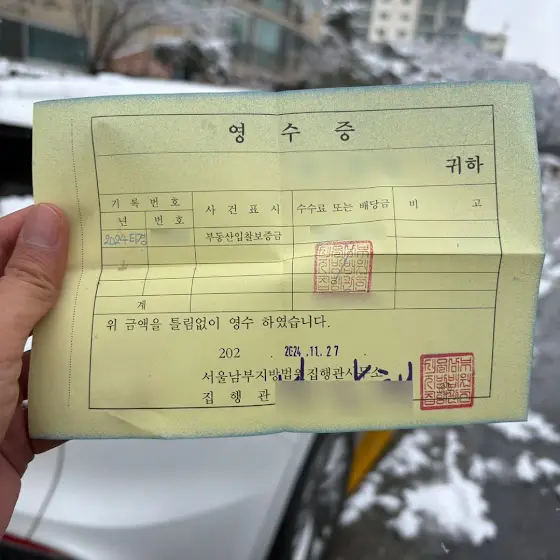 영 수 증
귀하
기 록 번 호 사 건 표 시 수수료 또는 배당금 비 고
년 번 호
2024타경 부동산입찰보증금
계
위 금액을 틀림없이 영수 하였습니다.
202 2024.11.27 .
서울남부지방법원집행관사무소
집 행 관